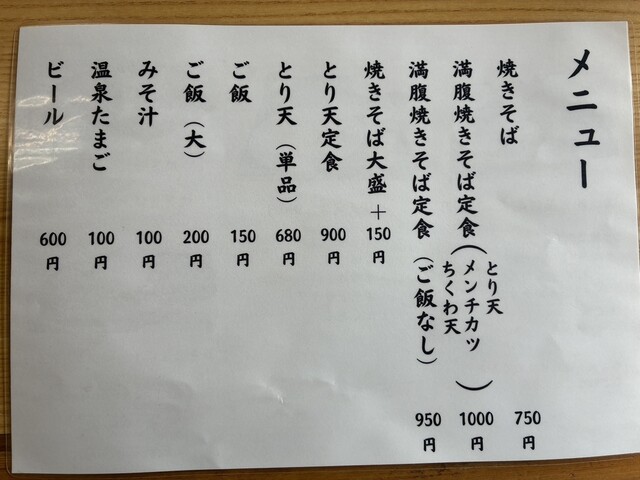 メニュー
焼きそば 750円
満腹焼きそば定食（とり天 メンチカツ ちくわ天） 1000円
満腹焼きそば定食（ご飯なし） 950円
焼きそば大盛＋150円
とり天定食 900円
とり天（単品） 680円
ご飯 150円
ご飯（大） 200円
みそ汁 100円
温泉たまご 100円
ビール 600円